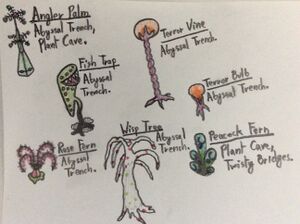 Angler Palm
Abyssal Trench,
Plant Cave.
Fish Trap
Abyssal
Trench.
Terror Vine
Abyssal Trench.
Terror Bulb
Abyssal Trench.
Rose Fern
Abyssal
Trench.
Wisp Tree
Abyssal
Trench.
Peacock Fern
Plant Cave,
Twisty Bridges.